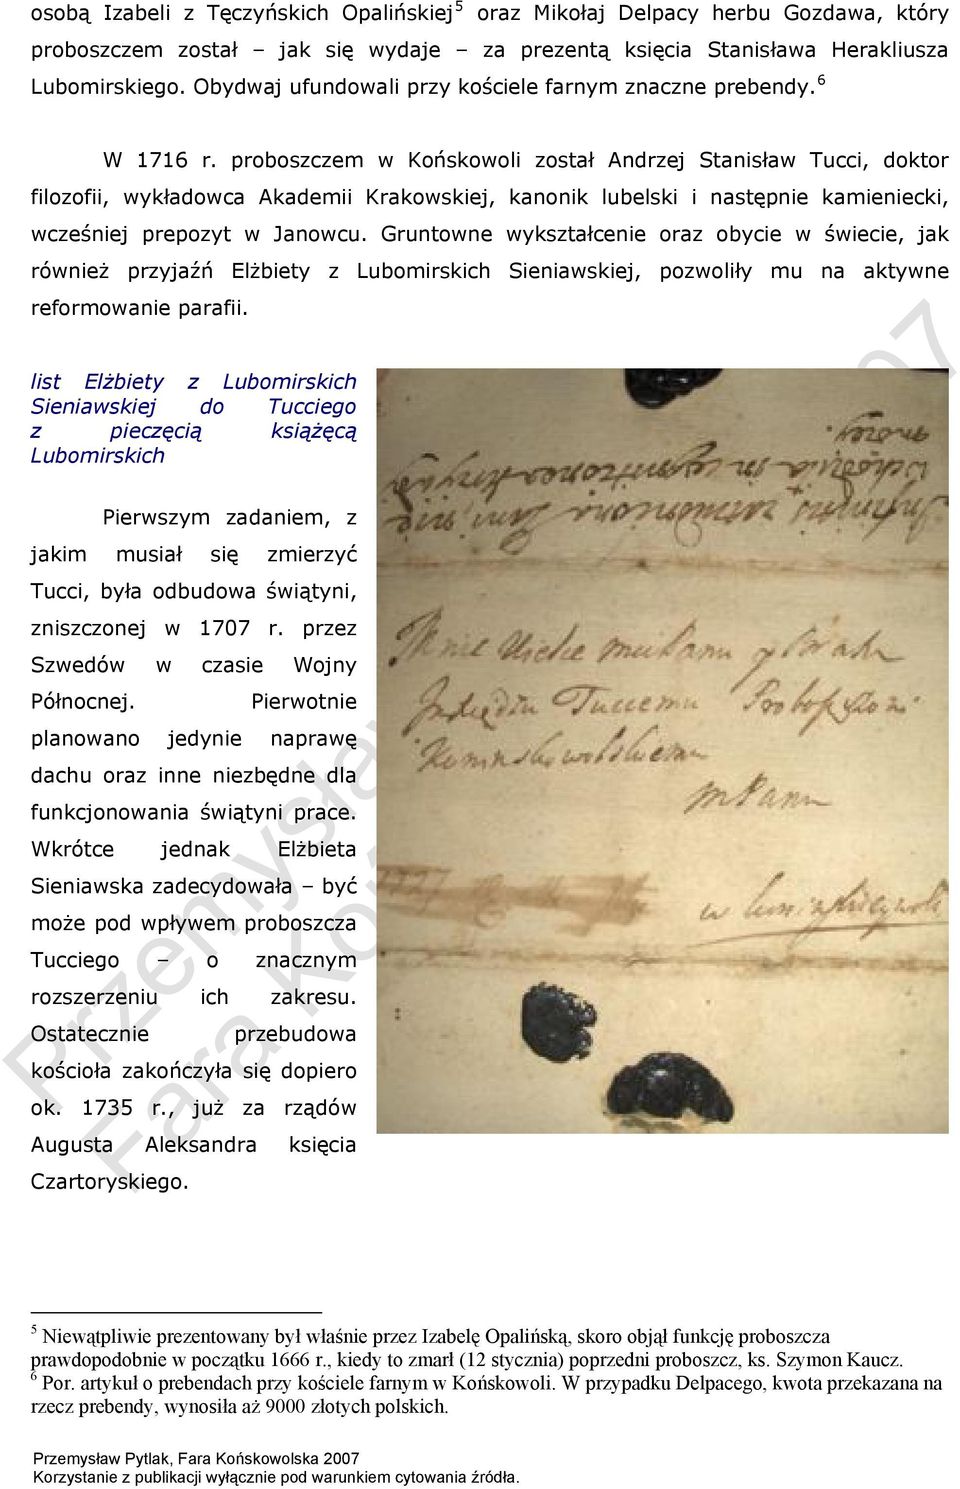 osobą Izabeli z Tęczyńskich Opalińskiej5 oraz Mikołaj Delpacy herbu Gozdawa, który
proboszczem został – jak się wydaje – za prezentą księcia Stanisława Herakliusza
Lubomirskiego. Obydwaj ufundowali przy kościele farnym znaczne prebendy.6
W 1716 r. proboszczem w Końskowoli został Andrzej Stanisław Tucci, doktor
filozofii, wykładowca Akademii Krakowskiej, kanonik lubelski i następnie kamieniecki,
wcześniej prepozyt w Janowcu. Gruntowne wykształcenie oraz obycie w świecie, jak
również przyjaźń Elżbiety z Lubomirskich Sieniawskiej, pozwoliły mu na aktywne
reformowanie parafii.
list Elżbiety z Lubomirskich
Sieniawskiej do Tucciego
z pieczęcią książęcą
Lubomirskich
Pierwszym zadaniem, z
jakim musiał się zmierzyć
Tucci, była odbudowa świątyni,
zniszczonej w 1707 r. przez
Szwedów w czasie Wojny
Północnej. Pierwotnie
planowano jedynie naprawę
dachu oraz inne niezbędne dla
funkcjonowania świątyni prace.
Wkrótce jednak Elżbieta
Sieniawska zadecydowała – być
może pod wpływem proboszcza
Tucciego – o znacznym
rozszerzeniu ich zakresu.
Ostatecznie przebudowa
kościoła zakończyła się dopiero
ok. 1735 r., już za rządów
Augusta Aleksandra księcia
Czartoryskiego.
Tuccemu
mPanu
w
5 Niewątpliwie prezentowany był właśnie przez Izabelę Opalińską, skoro objął funkcję proboszcza
prawdopodobnie w początku 1666 r., kiedy to zmarł (12 stycznia) poprzedni proboszcz, ks. Szymon Kaucz.
6 Por. artykuł o prebendach przy kościele farnym w Końskowoli. W przypadku Delpacego, kwota przekazana na
rzecz prebendy, wynosiła aż 9000 złotych polskich.
Przemysław Pytlak, Fara Końskowolska 2007
Korzystanie z publikacji wyłącznie pod warunkiem cytowania źródła.